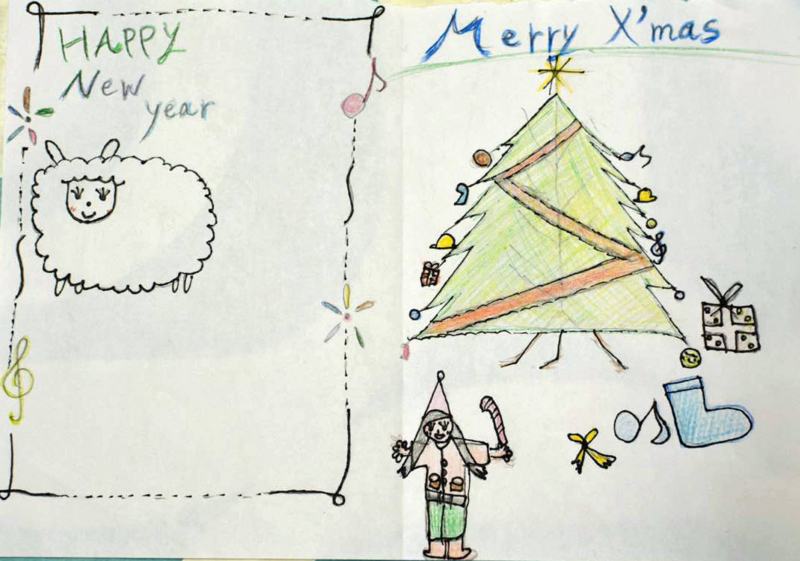 HAPPY
New
year
Merry X'mas